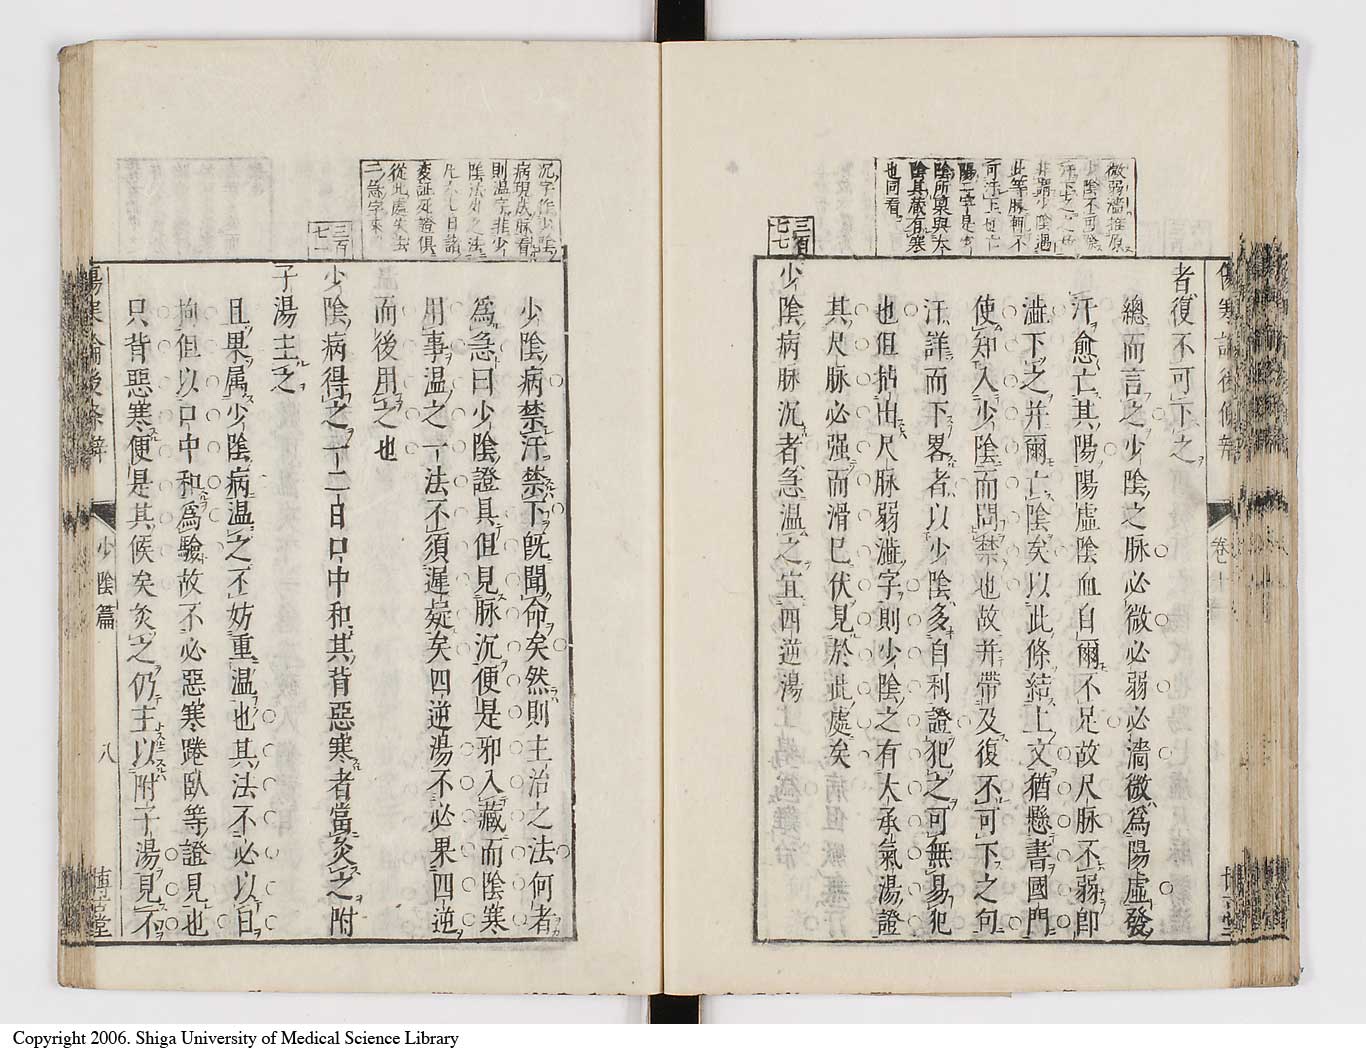 微弱濇推原
少陰不可陰
汗下之之也
非謂少陰遇
此等脉輒不
可汗下也亡
陽二字是
陰所稟與太
陰其藏有寒
也同看
三百
七七
者復不可下之
總而言之少陰之脉必微必弱必濇微爲陽虛發
汗愈亡其陽陽虛陰血自爾不足故尺脉不弱卽
澁下之并爾亡陰矣以此條結上文猶懸書國門
使知入少陰而問禁也故并帶及復不可下之句
汗詳而下畧者以少陰多自利證犯之可無易犯
也但拈出尺脉弱澁字則少陰之有大承氣湯證
其尺脉必强而滑已伏見於此處矣
少陰病脉沉者急温之宜四逆湯
沉字作少陰
病現成脉看
則温字非少
陰法也之法
凡不七日諸
変証死證俱
從此處失去
一急字來
三百
七一
少陰病禁汗禁下旣聞命矣然則主治之法何者
為急曰少陰證具但見脉沉便是邪入藏而陰寒
用事温之一法不須遲疑矣四逆湯不必果四逆
而後用之也
少陰病得之一二日口中和其背惡寒者當灸之附
子湯主之
且果属少陰病温之不妨重温也其法不必以日
拘但以口中和爲驗故不必惡寒踡臥等證見也
只背惡寒便是其候矣灸之仍主以附子湯見不
傷寒論後條辨
少陰篇
八
博古堂